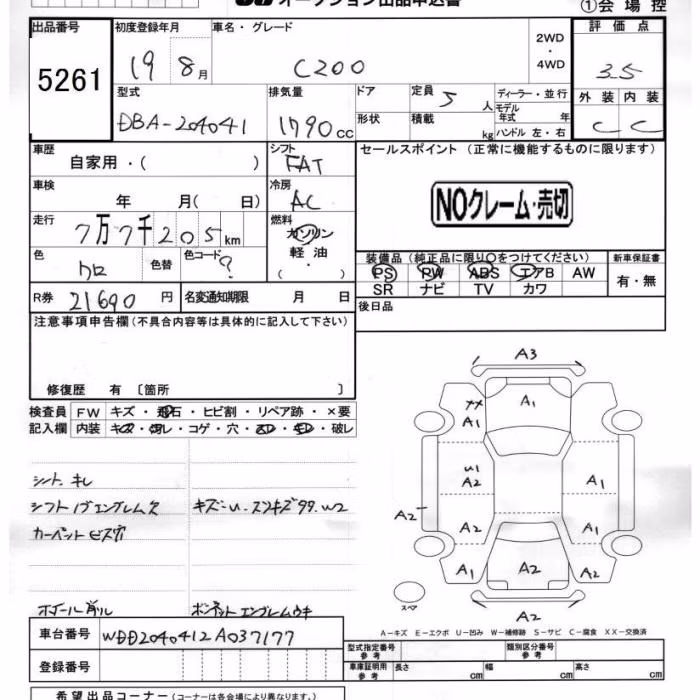 オークション出品申込書
①会場控
出品番号 初度登録年月 車名・グレード 2WD・4WD 評価点
5261 19 8月 C200 3.5
型式 排気量 ドア 定員 5人 ディーラー・並行 外装 内装
DBA-204041 1790cc 形状 積載 kg モデル年式 年 ハンドル 左・右 C C
車歴 自家用・( ) シフト FAT セールスポイント (正常に機能するものに限ります)
車検 年 月( 日) 冷房 AC NOクレーム・売切
走行 7万7千205km 燃料 ガソリン
軽油
( ・ )
色 クロ 色替 色コード ? 装備品 (純正品に限り○をつけてください) 新車保証書
PS PW ABS エアB AW 有・無
SR ナビ TV カワ
R券 21690円 名変通知期限 月 日 後日品
注意事項申告欄(不具合内容等は具体的に記入して下さい)
修復歴 有 〔箇所 〕
検査員 FW キズ・飛石・ヒビ割・リペア跡・×要
記入欄 内装 キズ・汚レ・コゲ・穴・破レ
A3
A1
A1
U1
A2 A1
A2
A2 A1
A1 A2 A2
A2
シート キレ
シフトノブエンブレム欠
カーペット ビス穴
ホイール削リ ボンネットエンブレムウキ
スペア
A-キズ E-エクボ U-凹み W-補修跡 S-サビ C-腐食 XX-交換済
車台番号 WDD2040412A037177 型式指定番号 参考 類別区分番号 参考
登録番号 車庫証明用 参考 長さ cm 幅 cm 高さ cm
希望出品コーナー (コーナーは各会場により異なります。)